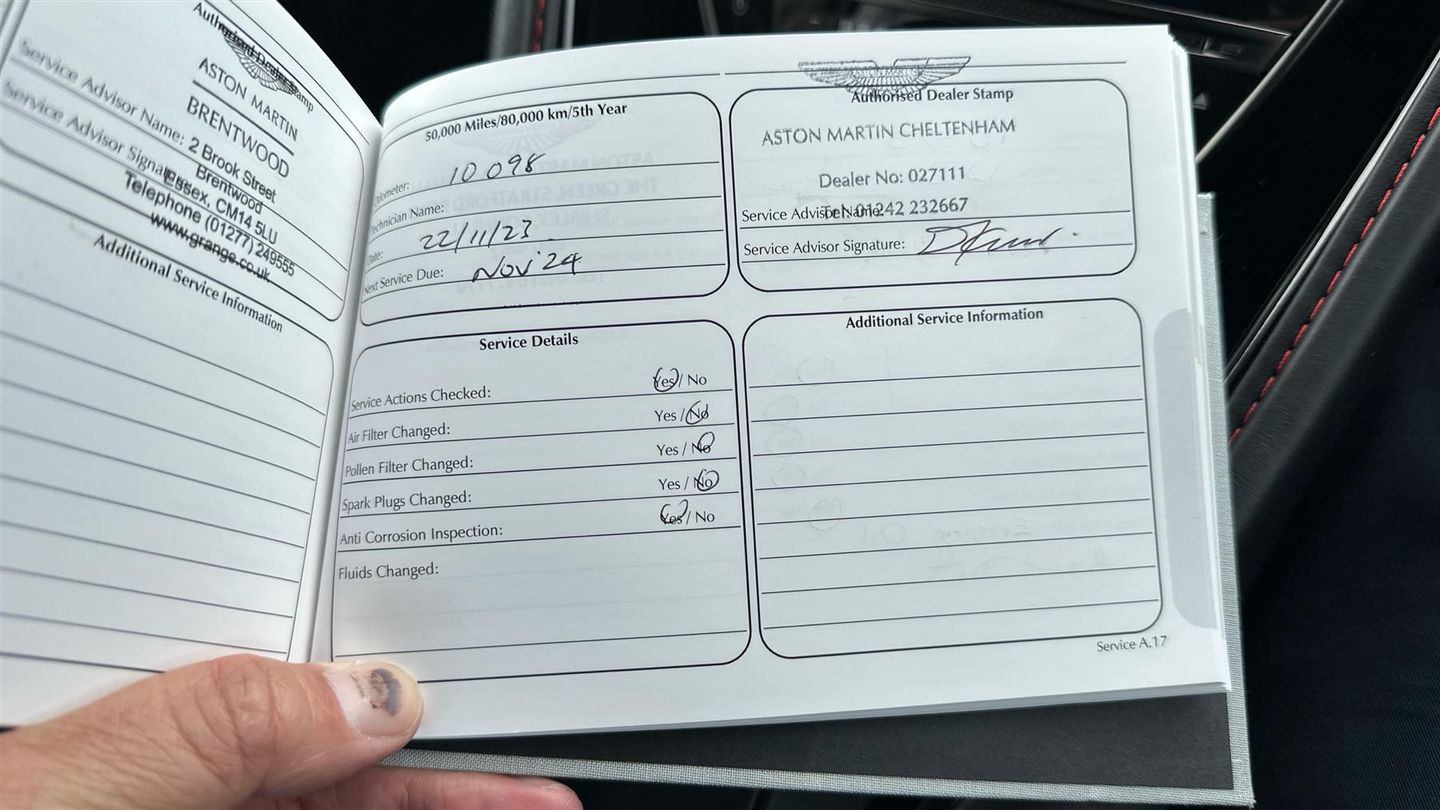 Authorised Dealer Stamp
ASTON MARTIN
BRENTWOOD
Service Advisor Name: 2 Brook Street
Brentwood
Service Advisor Signature:
Essex, CM14 5LU
Telephone (01277) 249555
www.grange.co.uk
Additional Service Information
50,000 Miles/80,000 km/5th Year
Odometer: 10 098
Technician Name:
Date: 22/11/23
Next Service Due: Nov '24
ASTON MARTIN
Authorised Dealer Stamp
ASTON MARTIN CHELTENHAM
Dealer No: 027111
Service Advisor Name: Tel: 01242 232667
Service Advisor Signature:
Service Details
Service Actions Checked: Yes / No
Air Filter Changed: Yes / No
Pollen Filter Changed: Yes / No
Spark Plugs Changed: Yes / No
Anti Corrosion Inspection: Yes / No
Fluids Changed:
Additional Service Information
Service A.17